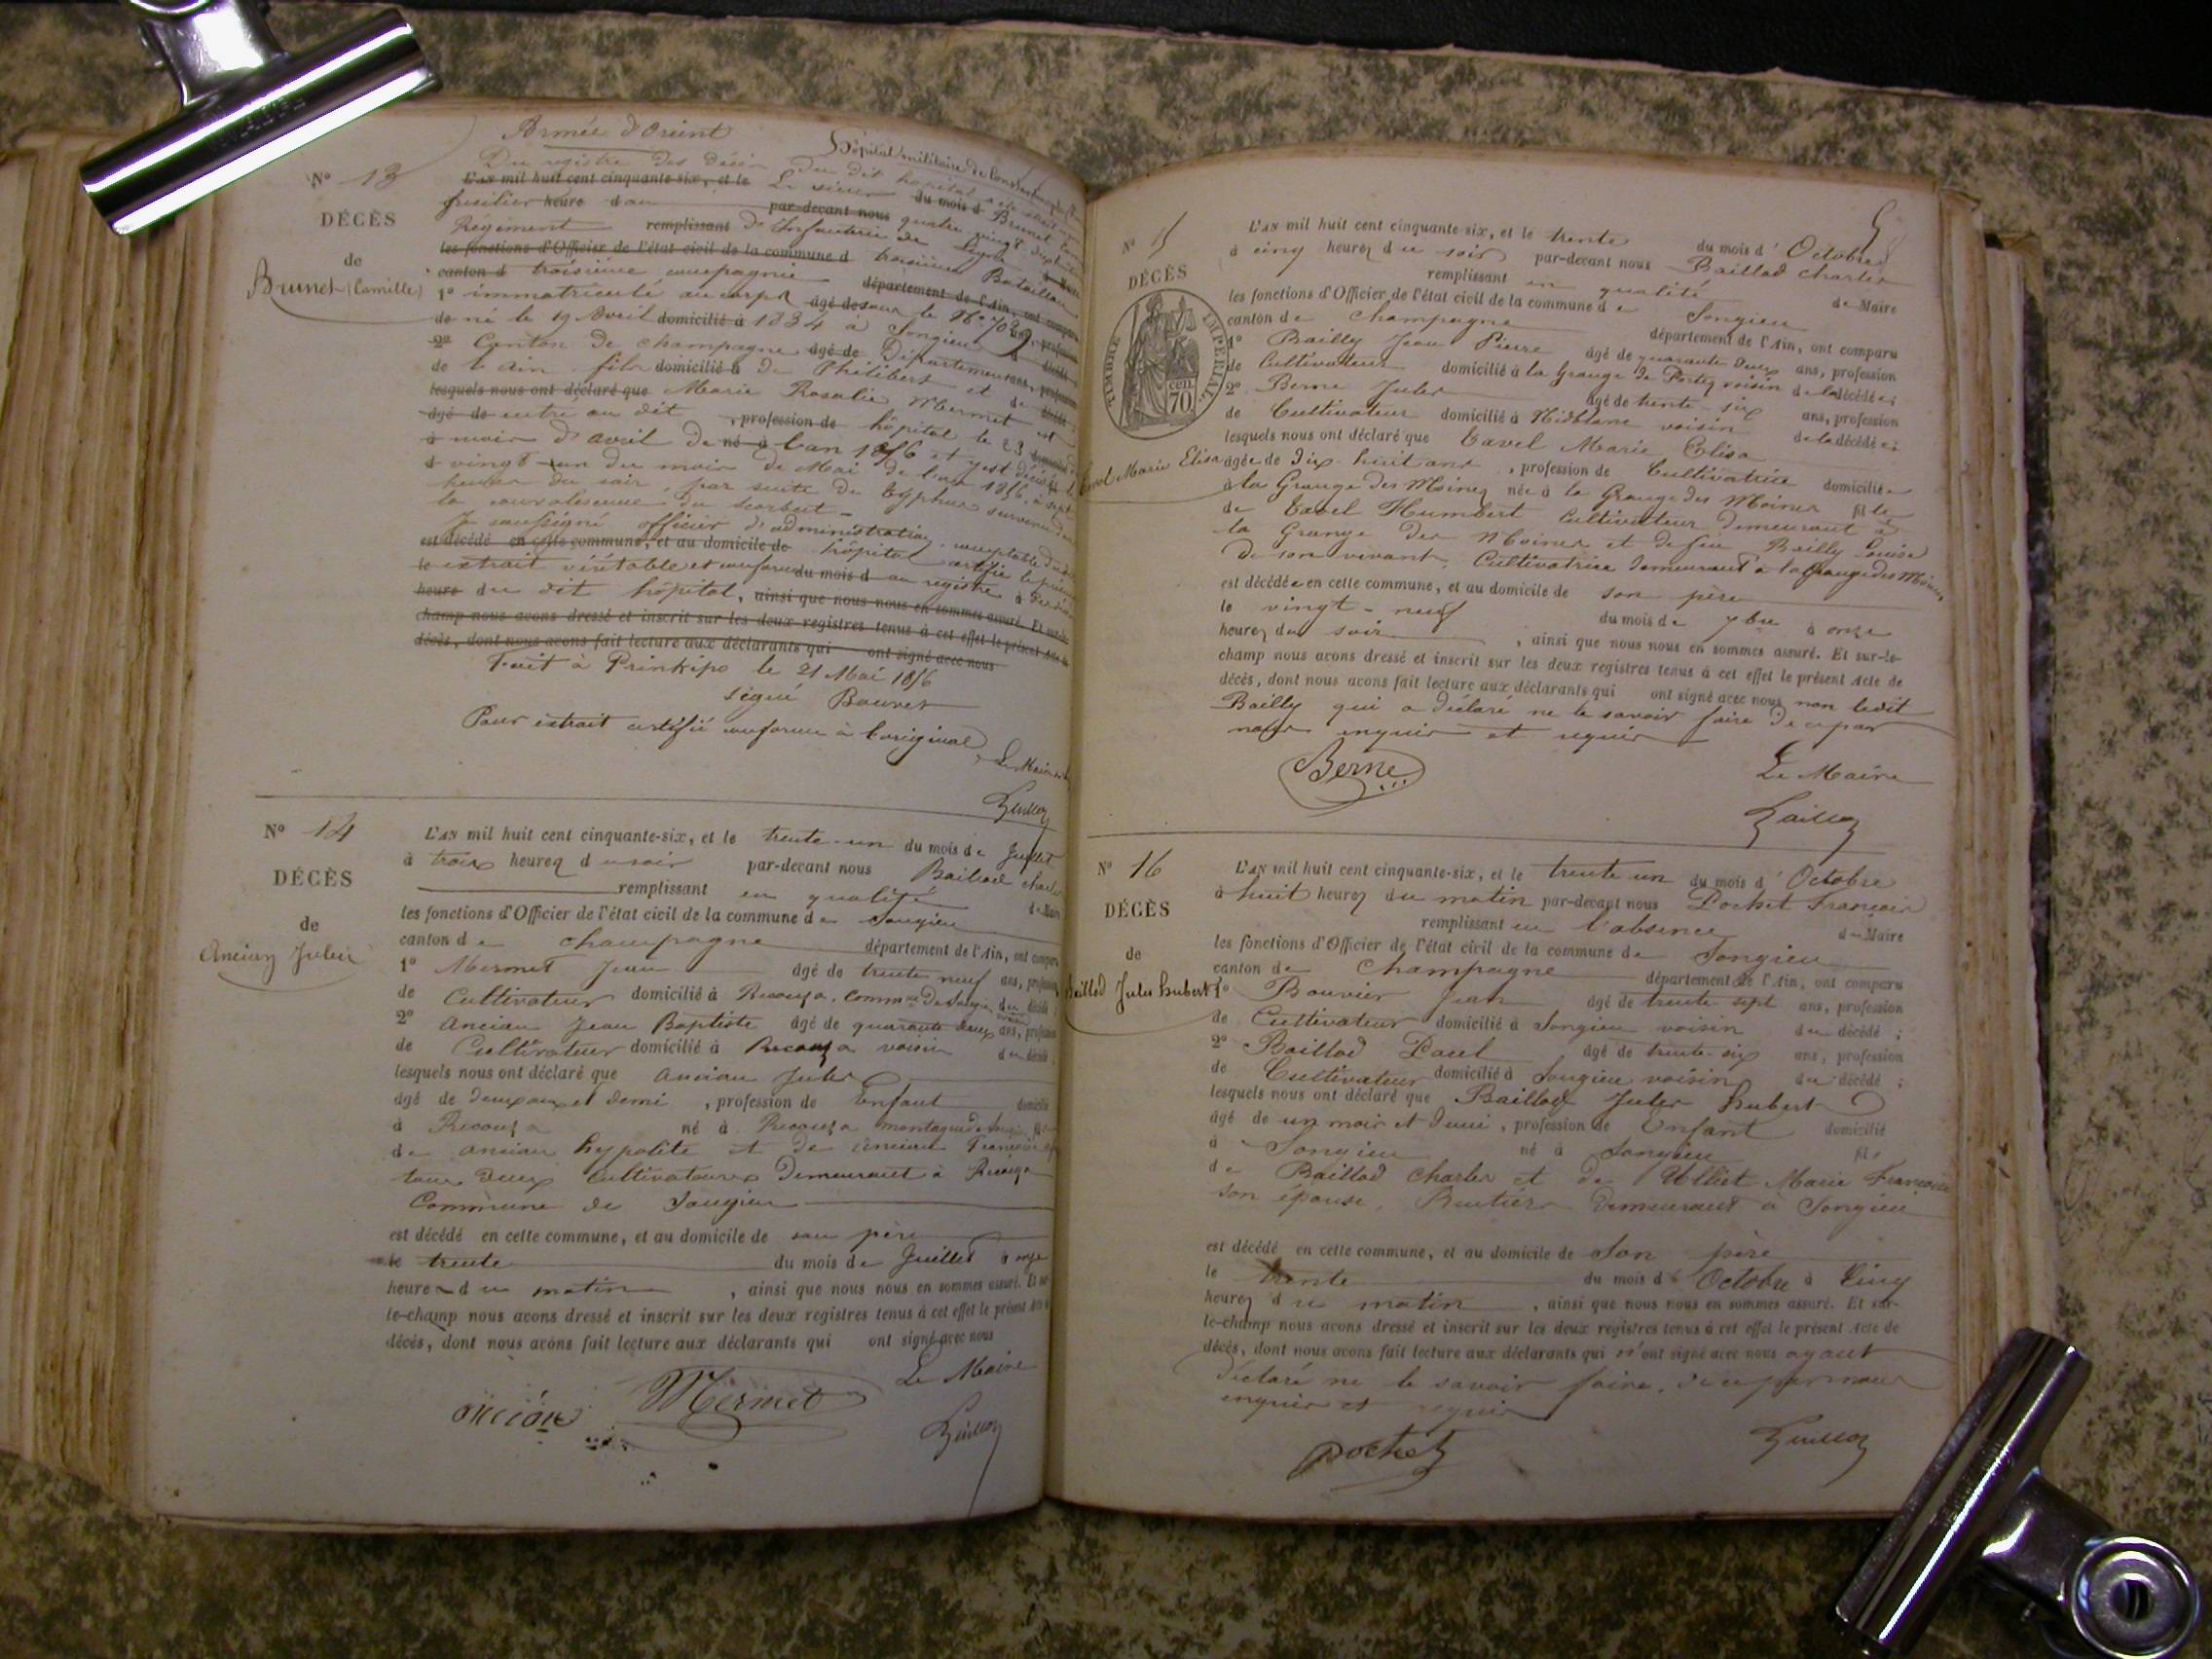 Armée d'Orient
Hôpital militaire de
N° 13
Du registre des décès du dit hopital
L'AN mil huit cent cinquante-six, et le Le sieur du mois d Brunet
fusilier heure d au par-devant nous quatre vingt
DÉCÈS
Régiment remplissant d'Infanterie de Ligne
les fonctions d'Officier de l'état civil de la commune d troisième Bataillon
de
canton d troisième compagnie département de l'Ain, ont comparu
Brunet (Camille)
1° immatriculé au corps âgé de sous le N° 7032
de né le 19 Avril domicilié à 1834 à Songieu
2° Canton de Champagne âgé de Département
de l'Ain fils domicilié à de Philibert et de
lesquels nous ont déclaré que Marie Rosalie Mermet est
âgé de entré au dit , profession de hôpital le 23
à mois d'avril de né à l'an 1856 et y est décédé le
d vingt-un du mois de Mai de l'an 1856, à sept
heures du soir, par suite de typhus survenu
la convalescence du scorbut
Je soussigné officier d'administration comptable
est décédé en cette commune, et au domicile de hôpital certifie le présent
le extrait véritable et conforme du mois d au registre à des décès
heure du dit hôpital, ainsi que nous nous en sommes assuré. Et sur-le-
champ nous avons dressé et inscrit sur les deux registres tenus à cet effet le présent Acte de
décès, dont nous avons fait lecture aux déclarants qui ont signé avec nous
Fait à Prinkipo le 21 Mai 1856
signé Bouvet
Pour extrait certifié conforme à l'original
Le Maire
N° 14
DÉCÈS
de
Ancian Jules
L'AN mil huit cent cinquante-six, et le trente-un du mois de Juillet
à trois heures du soir par-devant nous Baillod Charles
remplissant en qualité de Maire
les fonctions d'Officier de l'état civil de la commune de Songieu
canton de Champagne département de l'Ain, ont comparu
1° Mermet Jean âgé de trente neuf ans, profession
de Cultivateur domicilié à , comm de Songieu du décédé ;
2° Ancian Jean Baptiste âgé de quarante deux ans, profession
de Cultivateur domicilié à voisin du décédé ;
lesquels nous ont déclaré que Ancian Jules
âgé de deux ans et demi , profession de Enfant domicilié
à né à montagne de fils
de Ancian hypolite et de Ancian
tous deux Cultivateurs Demeurant à
Commune de Songieu
est décédé en cette commune, et au domicile de son père
le trente du mois de Juillet à onze
heures du matin , ainsi que nous nous en sommes assuré. Et sur-
le-champ nous avons dressé et inscrit sur les deux registres tenus à cet effet le présent Acte de
décès, dont nous avons fait lecture aux déclarants qui ont signé avec nous
Le Maire
ancian Mermet
5
N° 15
DÉCÈS
TIMBRE IMPÉRIAL
cen
70
Marie Elisa
L'AN mil huit cent cinquante-six, et le trente du mois d'Octobre
à cinq heures du soir par-devant nous Baillod Charles
remplissant en qualité de Maire
les fonctions d'Officier de l'état civil de la commune de Songieu
canton de Champagne département de l'Ain, ont comparu
1° Bailly Jean Pierre âgé de quarante deux ans, profession
de Cultivateur domicilié à la Grange de voisin de la décédée ;
2° Berne Jules âgé de trente-six ans, profession
de Cultivateur domicilié à voisin de la décédée ;
lesquels nous ont déclaré que Marie Elisa
âgée de Dix-huit ans , profession de Cultivatrice domiciliée
à la Grange des Moines née à la Grange des Moines fille
de Humbert Cultivateur Demeurant à
la Grange des Moines et de feu Bailly Louise
De son vivant, Cultivatrice demeurant à la Grange des Moines
est décédée en cette commune, et au domicile de son père
le vingt-neuf du mois de 
heures du soir , ainsi que nous nous en sommes assuré. Et sur-le-
champ nous avons dressé et inscrit sur les deux registres tenus à cet effet le présent Acte de
décès, dont nous avons fait lecture aux déclarants qui ont signé avec nous non ledit
Bailly qui a déclaré ne le savoir faire de ce par
nous enquis et requis
Berne
Le Maire
N° 16
DÉCÈS
de
Baillod Jules hubert
L'AN mil huit cent cinquante-six, et le trente un du mois d'Octobre
à huit heures du matin par-devant nous Pochet François
remplissant en l'absence du Maire
les fonctions d'Officier de l'état civil de la commune de Songieu
canton de Champagne département de l'Ain, ont comparu
1° Bouvier Jean âgé de trente-sept ans, profession
de Cultivateur domicilié à Songieu voisin du décédé ;
2° Baillod Paul âgé de trente-six ans, profession
de Cultivateur domicilié à Songieu voisin du décédé ;
lesquels nous ont déclaré que Baillod Jules hubert
âgé de un mois et demi , profession de Enfant domicilié
à Songieu né à Songieu fils
de Baillod Charles et de Marie Françoise
son épouse, Rentiers Demeurant à Songieu
est décédé en cette commune, et au domicile de son père
le trente du mois d'Octobre à Cinq
heures du matin , ainsi que nous nous en sommes assuré. Et sur-
le-champ nous avons dressé et inscrit sur les deux registres tenus à cet effet le présent Acte de
décès, dont nous avons fait lecture aux déclarants qui n'ont signé avec nous ayant
déclaré ne le savoir faire, de ce par nous
enquis et requis
Pochet